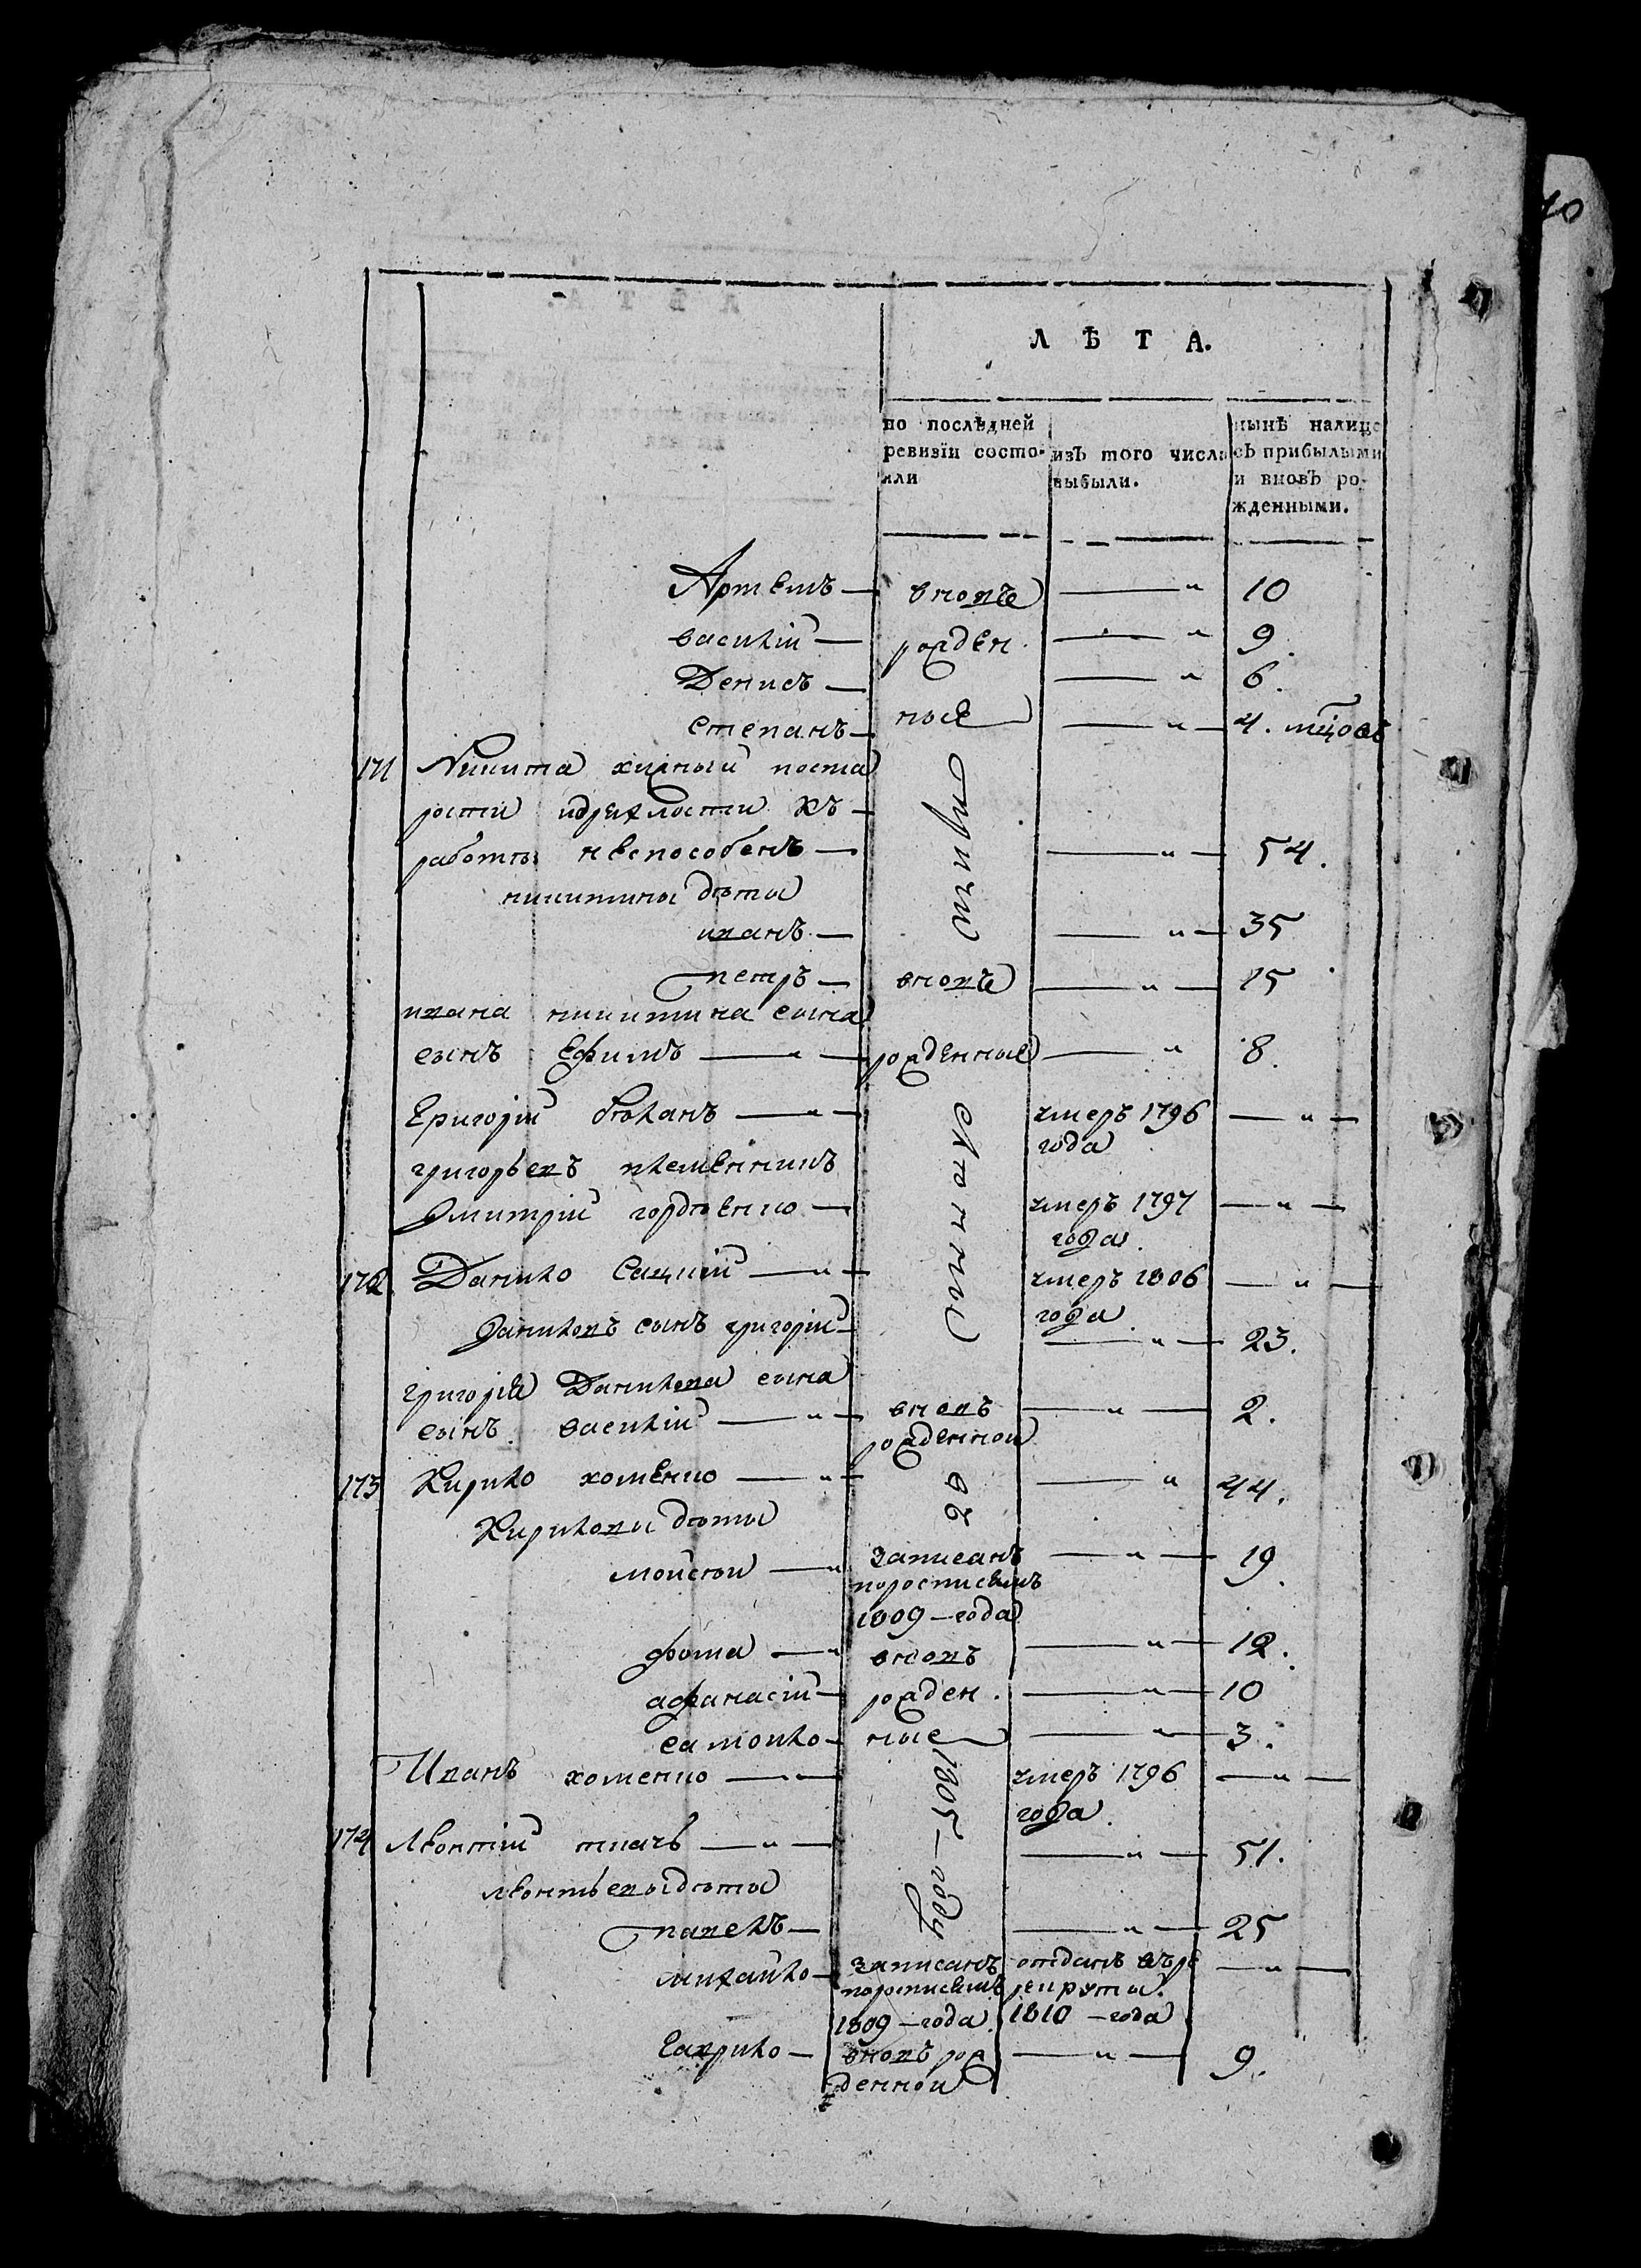 10
Л Ѣ Т А.
по послѣдней
ревизїи состо-
яли
изъ того числа
выбыли.
нынѣ налице
съ прибылыми
и вновь ро-
жденными.
Артемъ — вновѣ — „ 10
василій — рожден — „ 9.
Денисъ — „ 6.
степанъ — ные — „ 4. мцовъ
171 Никита хижный поста
рости идряхлости къ
работы неспособенъ — „ — 54.
никитины дѣти
иванъ — „ — 35
петръ — вновѣ — „ — 15
ивана никитина сына
сынъ Ефимъ — „ — рожденные — „ 8.
Григорій — „ — умеръ 1796 — „ —
года
григорьевъ племенникъ
Дмитрій гордѣенко — умеръ 1797 — „ —
года.
172 Данило — „ — умеръ 1806 — „ —
года
Даниловъ сынъ григорій — „ — 23.
григорія Данилова сына
сынъ василій — „ — вновъ — „ — 2.
рожденной
173 Кирило хоменко — „ — „ 44.
Кирилова дѣти
мойсѣй — „ записанъ — „ — 19.
поросписемъ
1809 — года
фома — „ вновъ — „ — 12.
афанасій — рожден — „ — 10
самойло — ные — „ 3.
Иванъ хоменко — „ — умеръ 1796 — „ —
года.
174 леонтій ткачъ — „ — „ — 51.
леонтьевы дѣти
павелъ — „ — 25
михайло — записанъ отданъ въре — „ —
поросписемъ рекруты.
1809 — года. 1810 — года
Гаврило — вновъ рож — „ — 9.
денной
1805 — году